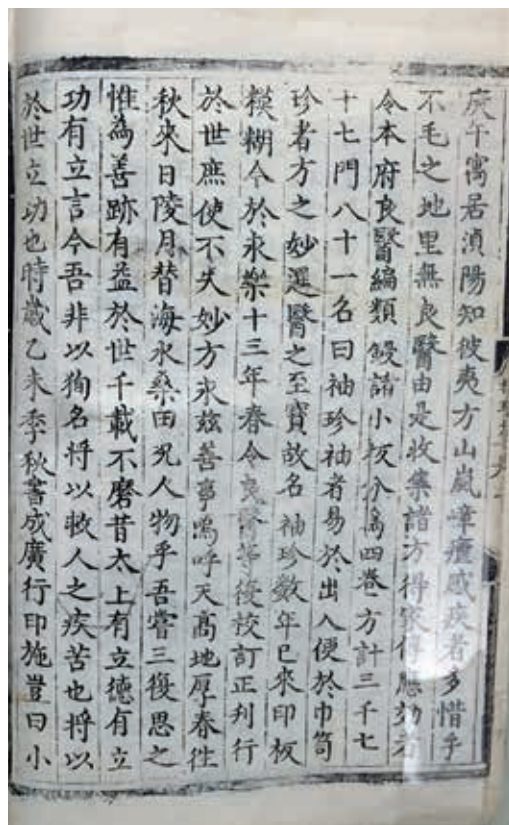 庚午寓居滇陽知彼夷方山嵐嶂瘧感疾者多惜乎
不毛之地里無良醫由是收集諸方得家傳應効者
令本府良醫編類鋟諸小板分為四卷方計三千七
十七門八十一名曰袖珍袖者易於出入便於巾笥
珍者方之妙選醫之至寶故名袖珍數年已來印板
模糊今於永樂十三年春令良醫等復校訂正刋行
於世庶使不失妙方永兹善事嗚呼天高地厚春徃
秋來日陵月替海水桑田况人物乎吾嘗三復思之
惟為善跡有益於世千載不磨昔太上有立德有立
功有立言今吾非以狥名将以救人之疾苦也将以
於世立功也時歲乙未季秋書成廣行印施豈曰小